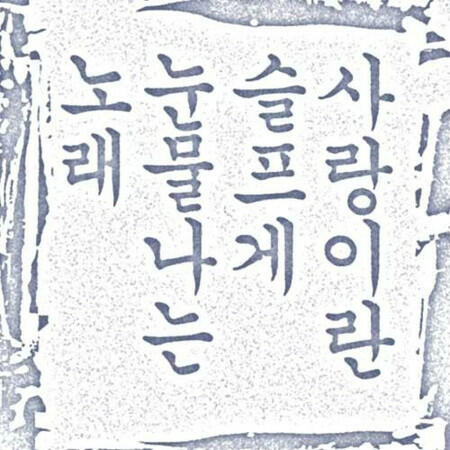 사랑이란
슬프게
눈물나는
노래